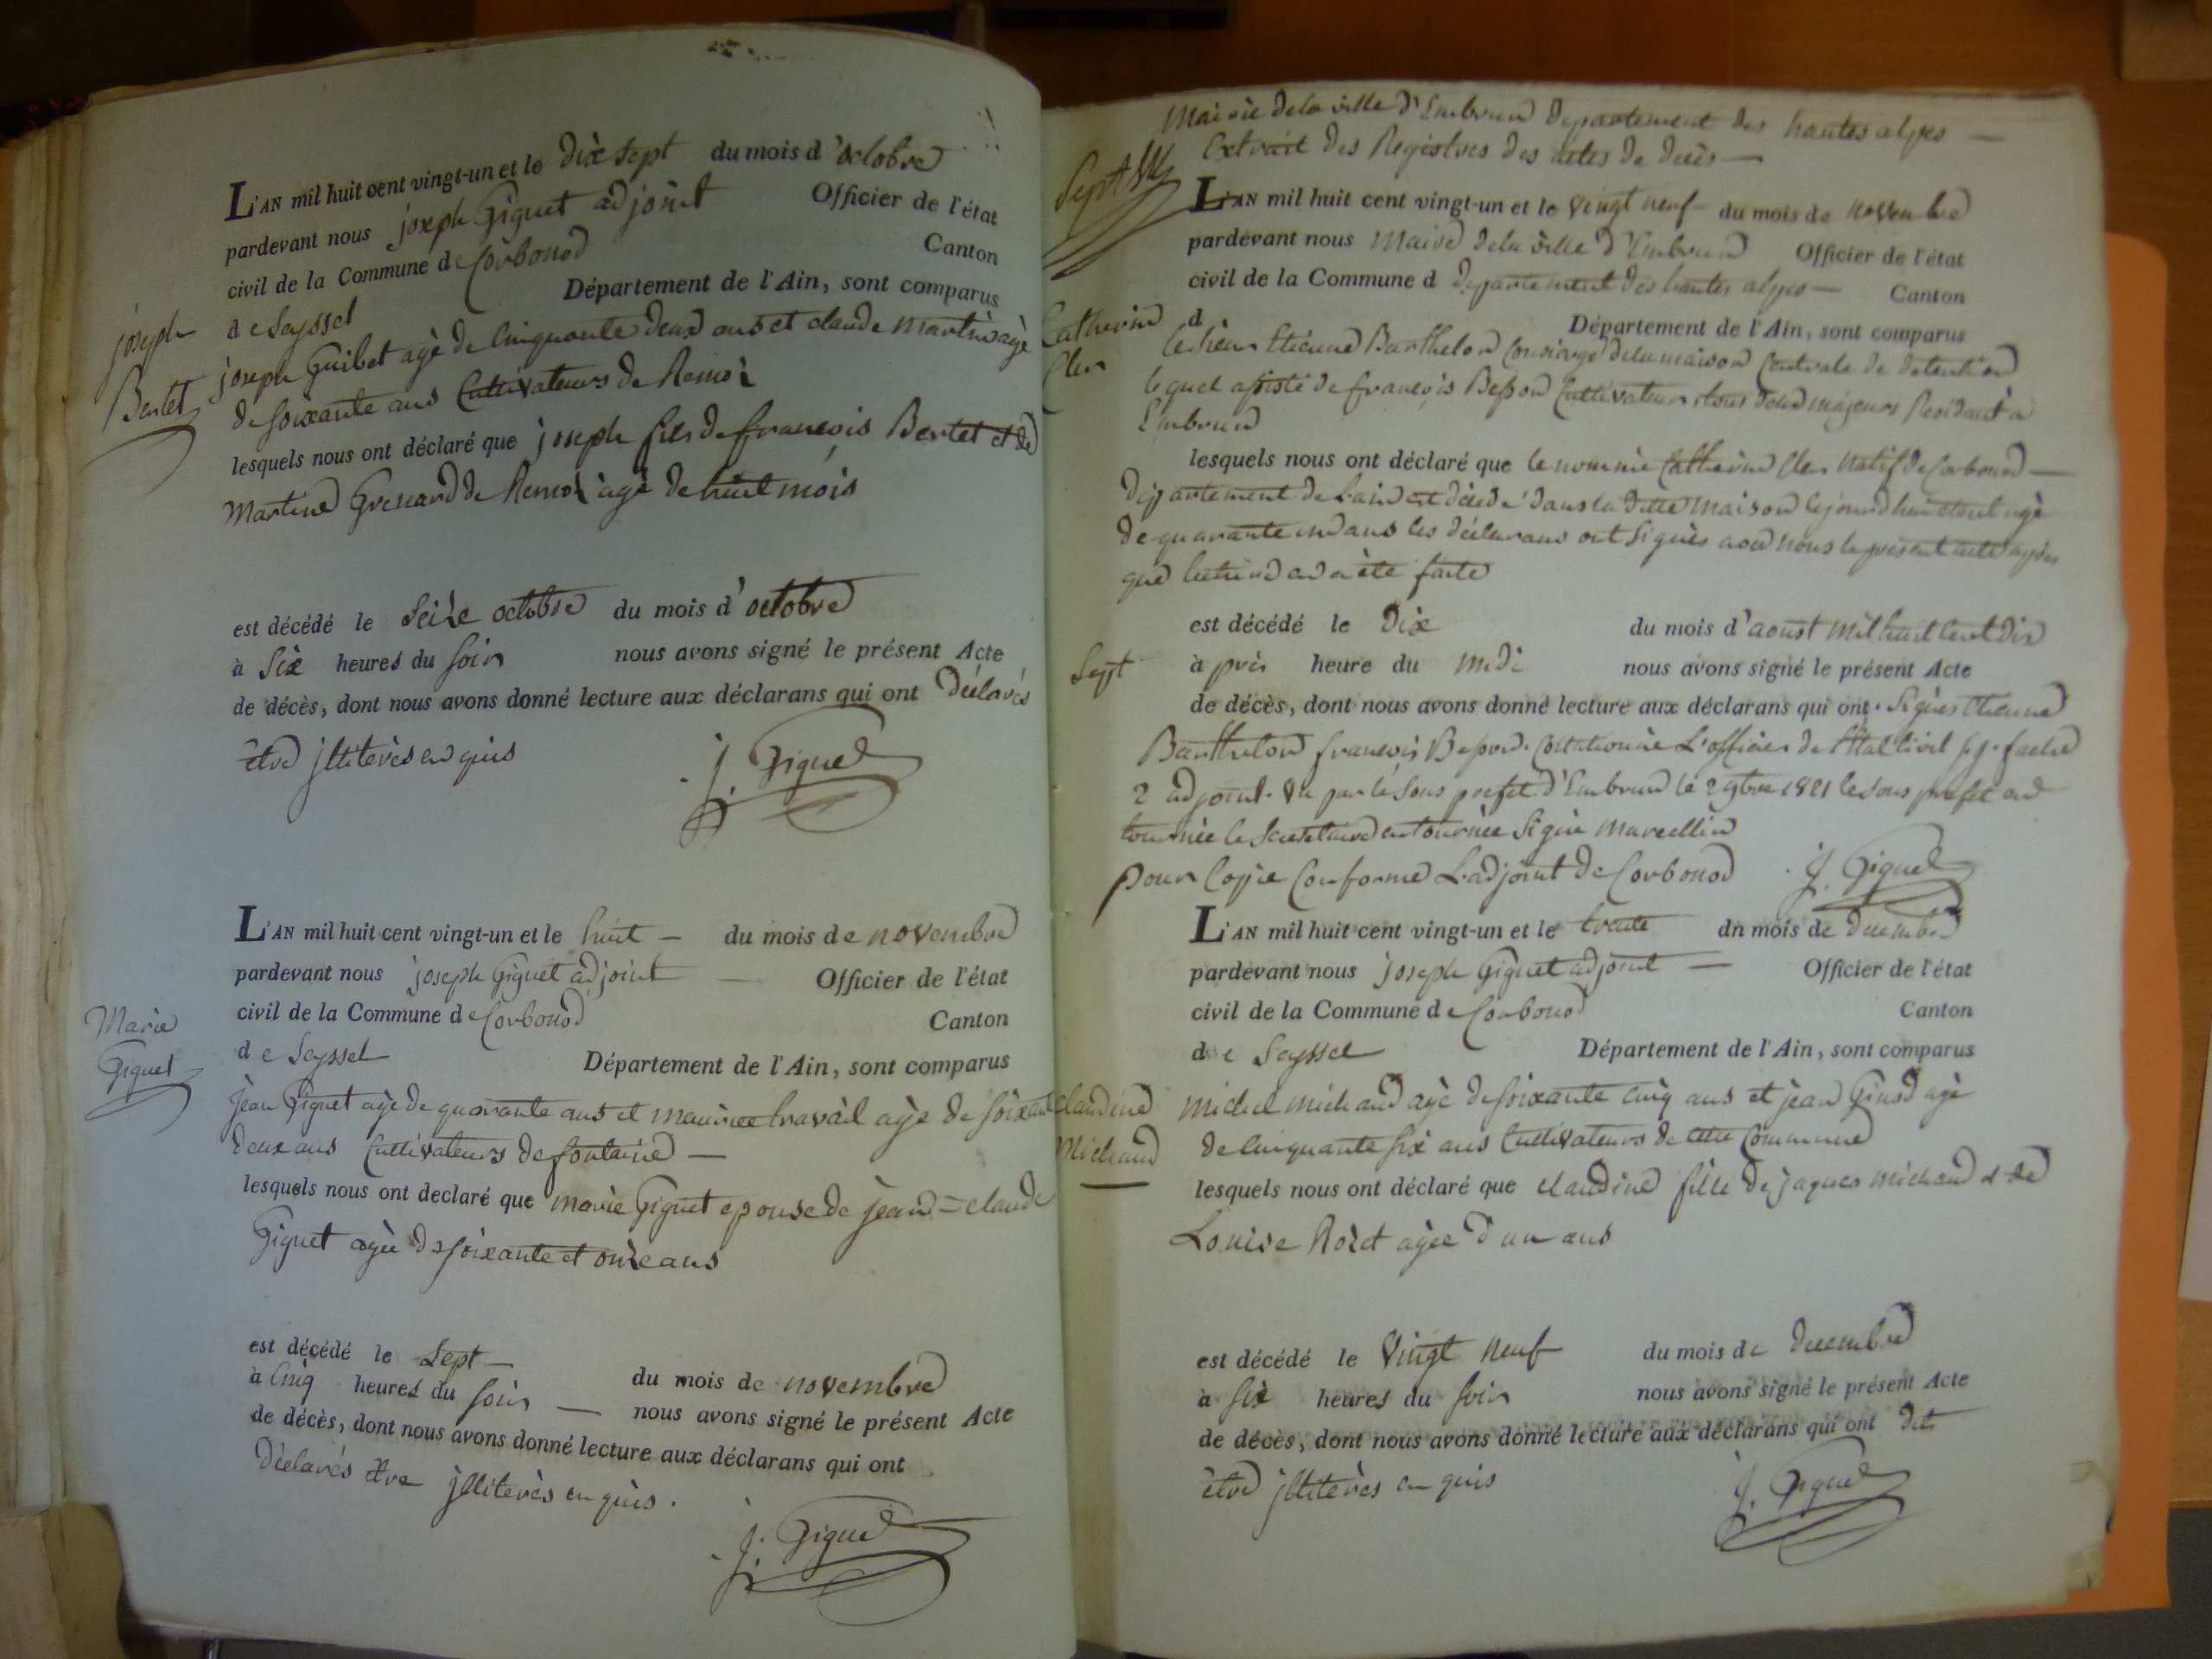 L'AN mil huit cent vingt-un et le dix sept du mois d'octobre
pardevant nous joseph Giguet adjoint Officier de l'état
civil de la Commune de Corbonod Canton
de Seyssel Département de l'Ain, sont comparus
joseph
Bertet
joseph Guibet agé de Cinquante deux ans et claude martin agé
de soixante ans Cultivateurs de Remoz
lesquels nous ont déclaré que joseph fils de françois Bertet et de
Martine Grenard de Remoz àgé de huit mois
est décédé le Seize octobre du mois d'octobre
à Six heures du soir nous avons signé le présent Acte
de décès, dont nous avons donné lecture aux déclarans qui ont Déclarés
être jlliterès enquis
J. Giguet
L'AN mil huit cent vingt-un et le huit du mois de novembre
pardevant nous joseph Giguet adjoint Officier de l'état
civil de la Commune de Corbonod Canton
de Seyssel Département de l'Ain, sont comparus
Marie
Giguet
jean Giguet agé de quarante ans et maurice travail agé de soixante
deux ans Cultivateurs de fontaine
lesquels nous ont declaré que marie Giguet epouse de jean=claude
Giguet agée de soixante et onze ans
est décédé le Sept du mois de novembre
à Cinq heures du soir nous avons signé le présent Acte
de décès, dont nous avons donné lecture aux déclarans qui ont
Déclarés être jlliterès enquis.
J. Giguet
Mairie de la ville d'Embrun Departement des hautes alpes
Extrait des Registres des actes de decès
L'AN mil huit cent vingt-un et le vingt neuf du mois de novembre
pardevant nous Maire de la ville d'Embrun Officier de l'état
civil de la Commune d departement des hautes alpes Canton
d Département de l'Ain, sont comparus
Catherin
le sieur Etienne Barthelon Concierge de la maison Centrale de detention
lequel assisté de françois Besson Cultivateur, tous deux majeurs Residant à
Embrun
lesquels nous ont déclaré que le nommé Catherin natif de Corbonod
département de l'ain est décédé dans la ditte maison cejourdhui etant agé
de quarante un ans les déclarans ont signés avec nous le present acte après
que lecture en a été faite
est décédé le Dix du mois d'aoust mil huit cent dix
Sept à près heure du midi nous avons signé le présent Acte
de décès, dont nous avons donné lecture aux déclarans qui ont. Signés Etienne
Barthelon françois Besson. Collationné L'officier de l'Etat Civil
2 adjoint. Vu par le Sous prefet d'Embrun le 2 9bre 1821 le Sous prefet en
tournée le Secretaire en tournée Signé Marcellin
pour Copie Conforme L'adjoint de Corbonod J. Giguet
L'AN mil huit cent vingt-un et le trente dn mois de decembre
pardevant nous joseph Giguet adjoint Officier de l'état
civil de la Commune de Corbonod Canton
de Seyssel Département de l'Ain, sont comparus
claudine
Michaud
michel michaud agé de soixante cinq ans et jean agé
de cinquante six ans Cultivateurs de cette Commune
lesquels nous ont déclaré que claudine fille de jaques michaud et de
Louise Rozet agée d'un ans
est décédé le Vingt neuf du mois de decembre
à six heures du soir nous avons signé le présent Acte
de décès, dont nous avons donné lecture aux déclarans qui ont dit
être jlliterès enquis
J. Giguet